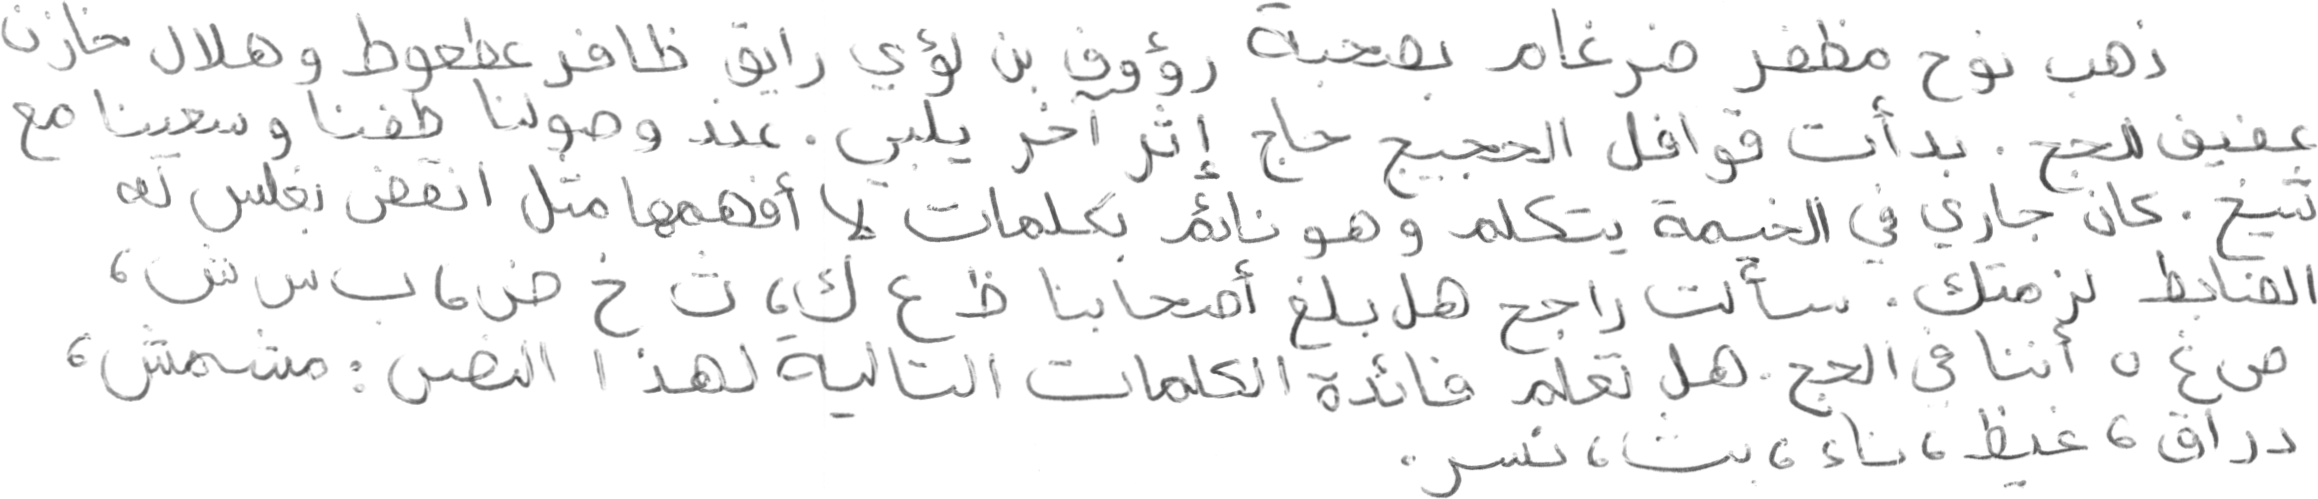 ذهب نوح مظفر ضرغام بصحبة رؤوف بن لؤي رايق ظافر عطعوط و هلال خازن
عفيف للحج . بدأت قوافل الحجيج حاج إثر آخر يلبي . عند وصولنا طفنا و سعينا مع
شيخ . كان جاري في الخيمة يتكلم و هو نائم بكلمات لا أفهمها مثل انقض بغلس له
الضابط لزمتك . سألت راجح هل بلغ أصحابنا ظ ع ك ، ث خ ض ، ب س ش ،
ص غ ه أننا في الحج . هل تعلم فائدة الكلمات التالية لهذا النص : مشمش ،
دراق ، غيظ ، ناء ، بث ، نسر .